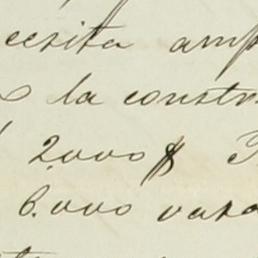 ecesita amp
la constr
2.000 $
6.000 vara